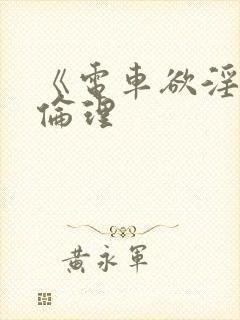 《電車欲淫
倫理
黄永軍